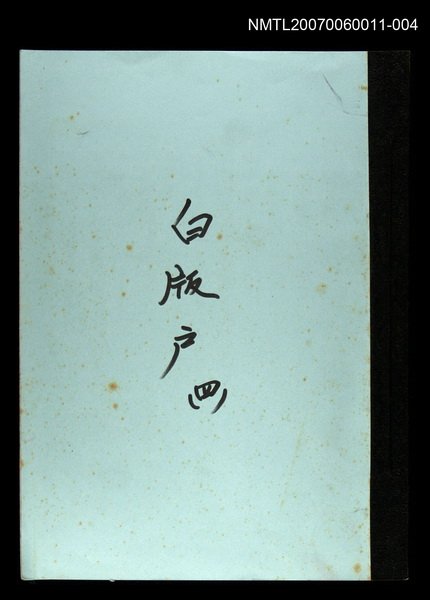 NMTL20070060011-004
白
版
户
(四)